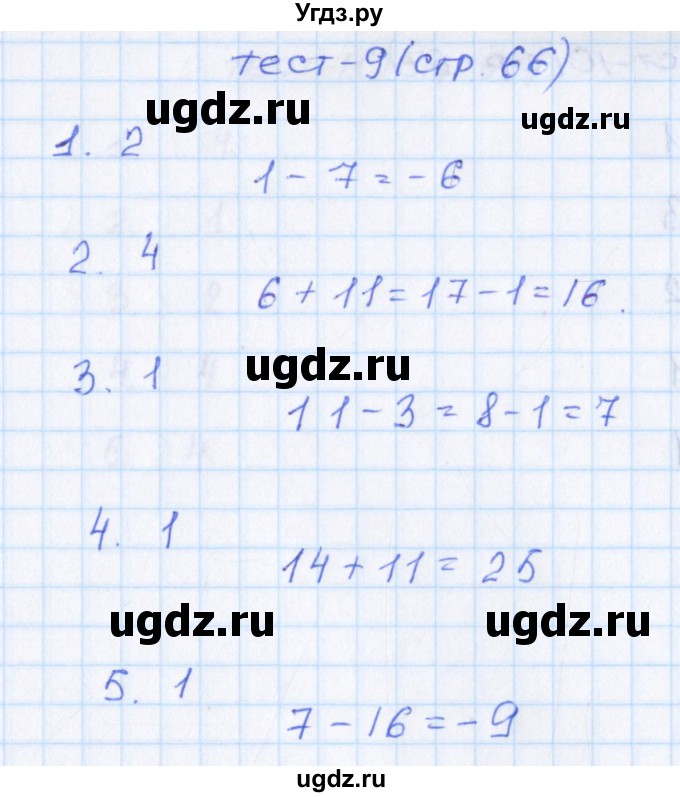 Угдз.ру
тест-9 (стр. 66)
ugdz.ru
ugdz.ru
1. 2
1 - 7 = - 6
2. 4
6 + 11 = 17 - 1 = 16.
ugdz.ru
3. 1
11 - 3 = 8 - 1 = 7
4. 1
14 + 11 = 25
ugdz.ru
ugdz.ru
5. 1
7 - 16 = - 9
ugdz.ru